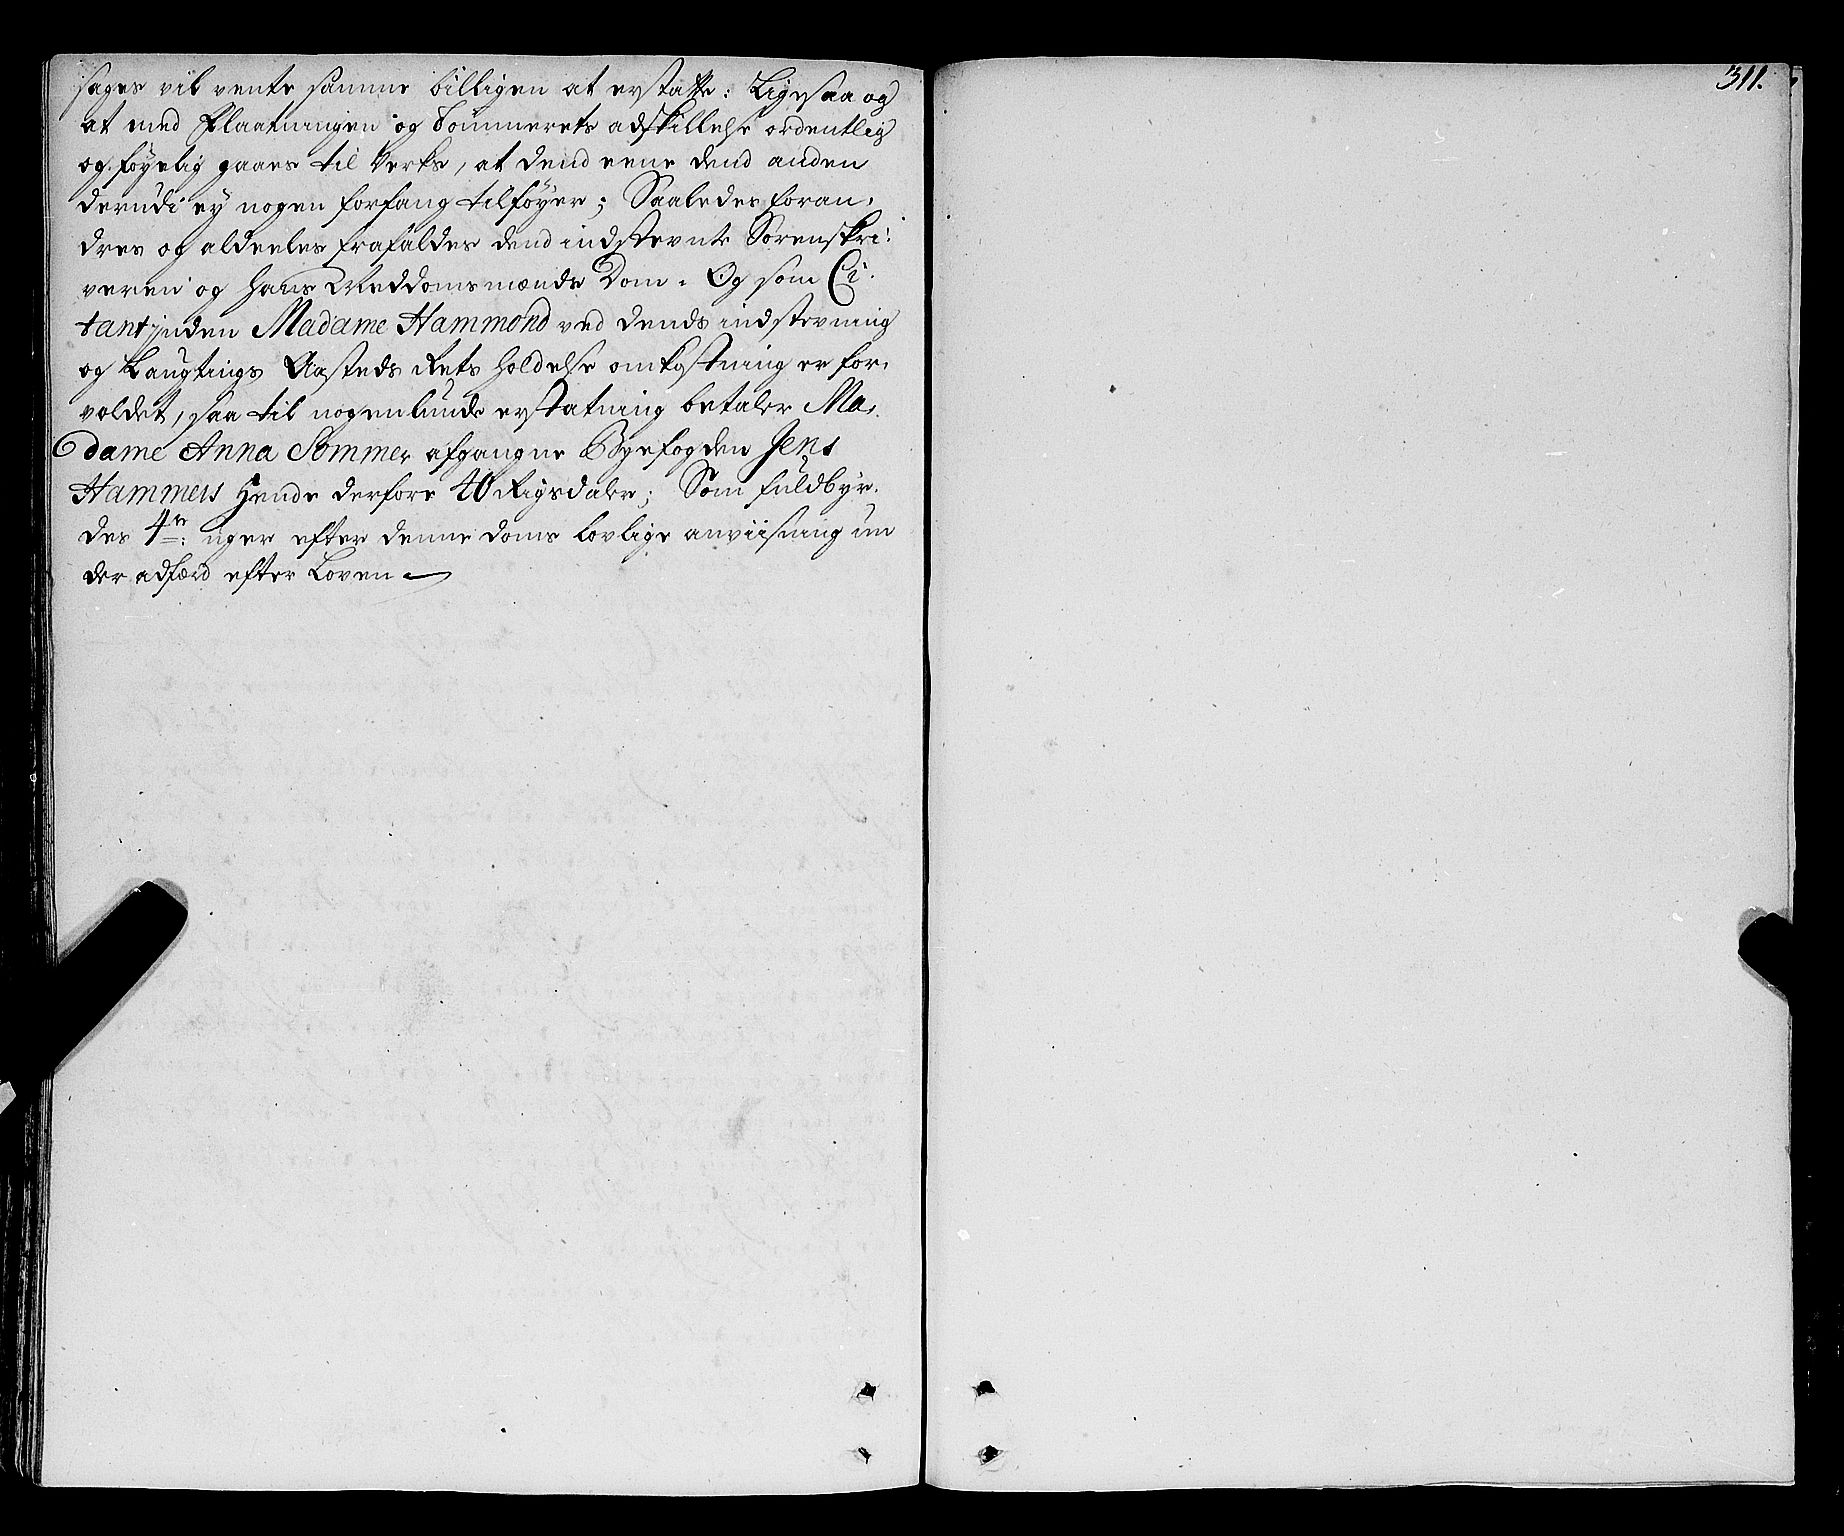 sages vil vente samme billigen at erstatte: Ligesaa og
at med Flaatningen og Tømmerets adskillelse ordentlig
og føyelig gaaes til Verks, at dend eene dend anden
derudi ey nogen forfang tilføyer; Saaledes foran-
dres og aldeeles frafaldes dend indstevnte Sorenskri-
veren og hans Meddomsmænds Dom. Og som Ci-
tantinden Madame Hammond ved dends indstevning
og Laugtings Aasteds Rets holdelse omkostning er for-
voldet, saa til nogenlunde erstatning betaler Ma-
dame Anna Sommer afgangne Byefogden Jens
Hammers Hende derfore 40 Rigsdaler; Som fuldbyr-
des 4re: uger efter denne doms lovlige anviisning un
der adfærd efter Loven
311.